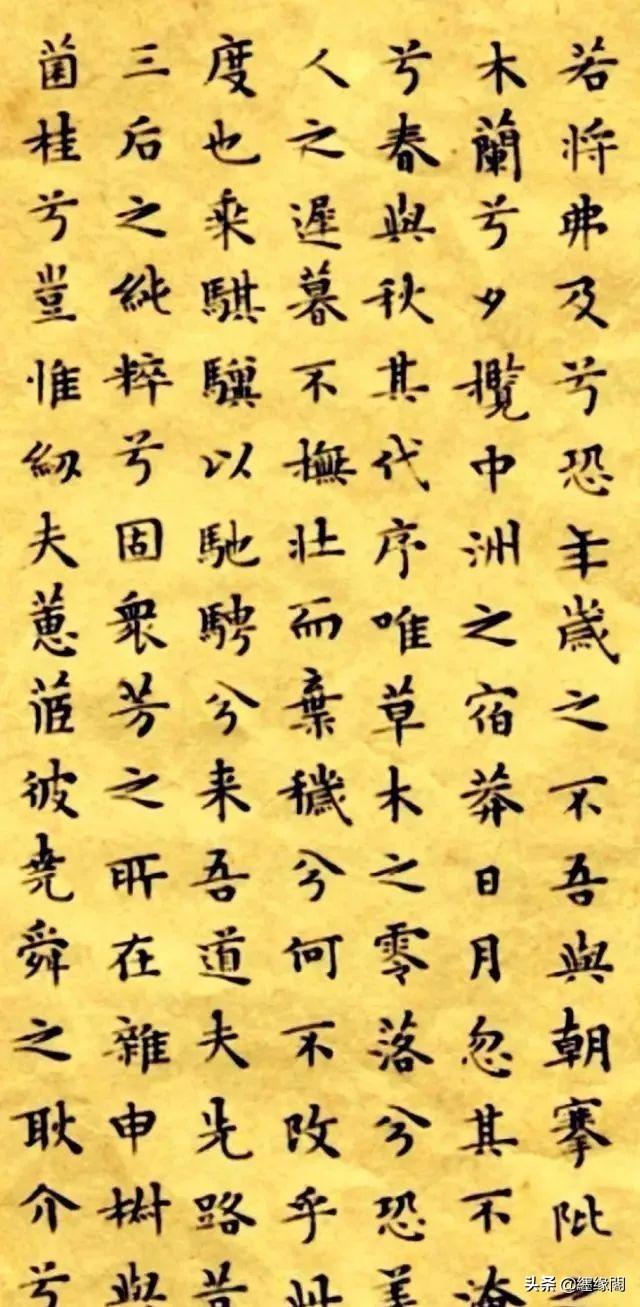 若将弗及兮恐年歲之不吾與朝搴阰
木蘭兮夕攬中洲之宿莽日月忽其不淹
兮春與秋其代序唯草木之零落兮恐美
人之遲暮不撫壯而棄穢兮何不改乎此
度也乘騏驥以馳騁兮来吾道夫先路昔
三后之純粹兮固衆芳之所在雜申椒與
菌桂兮豈惟紉夫蕙茝彼堯舜之耿介兮
头条 @纒缘閣